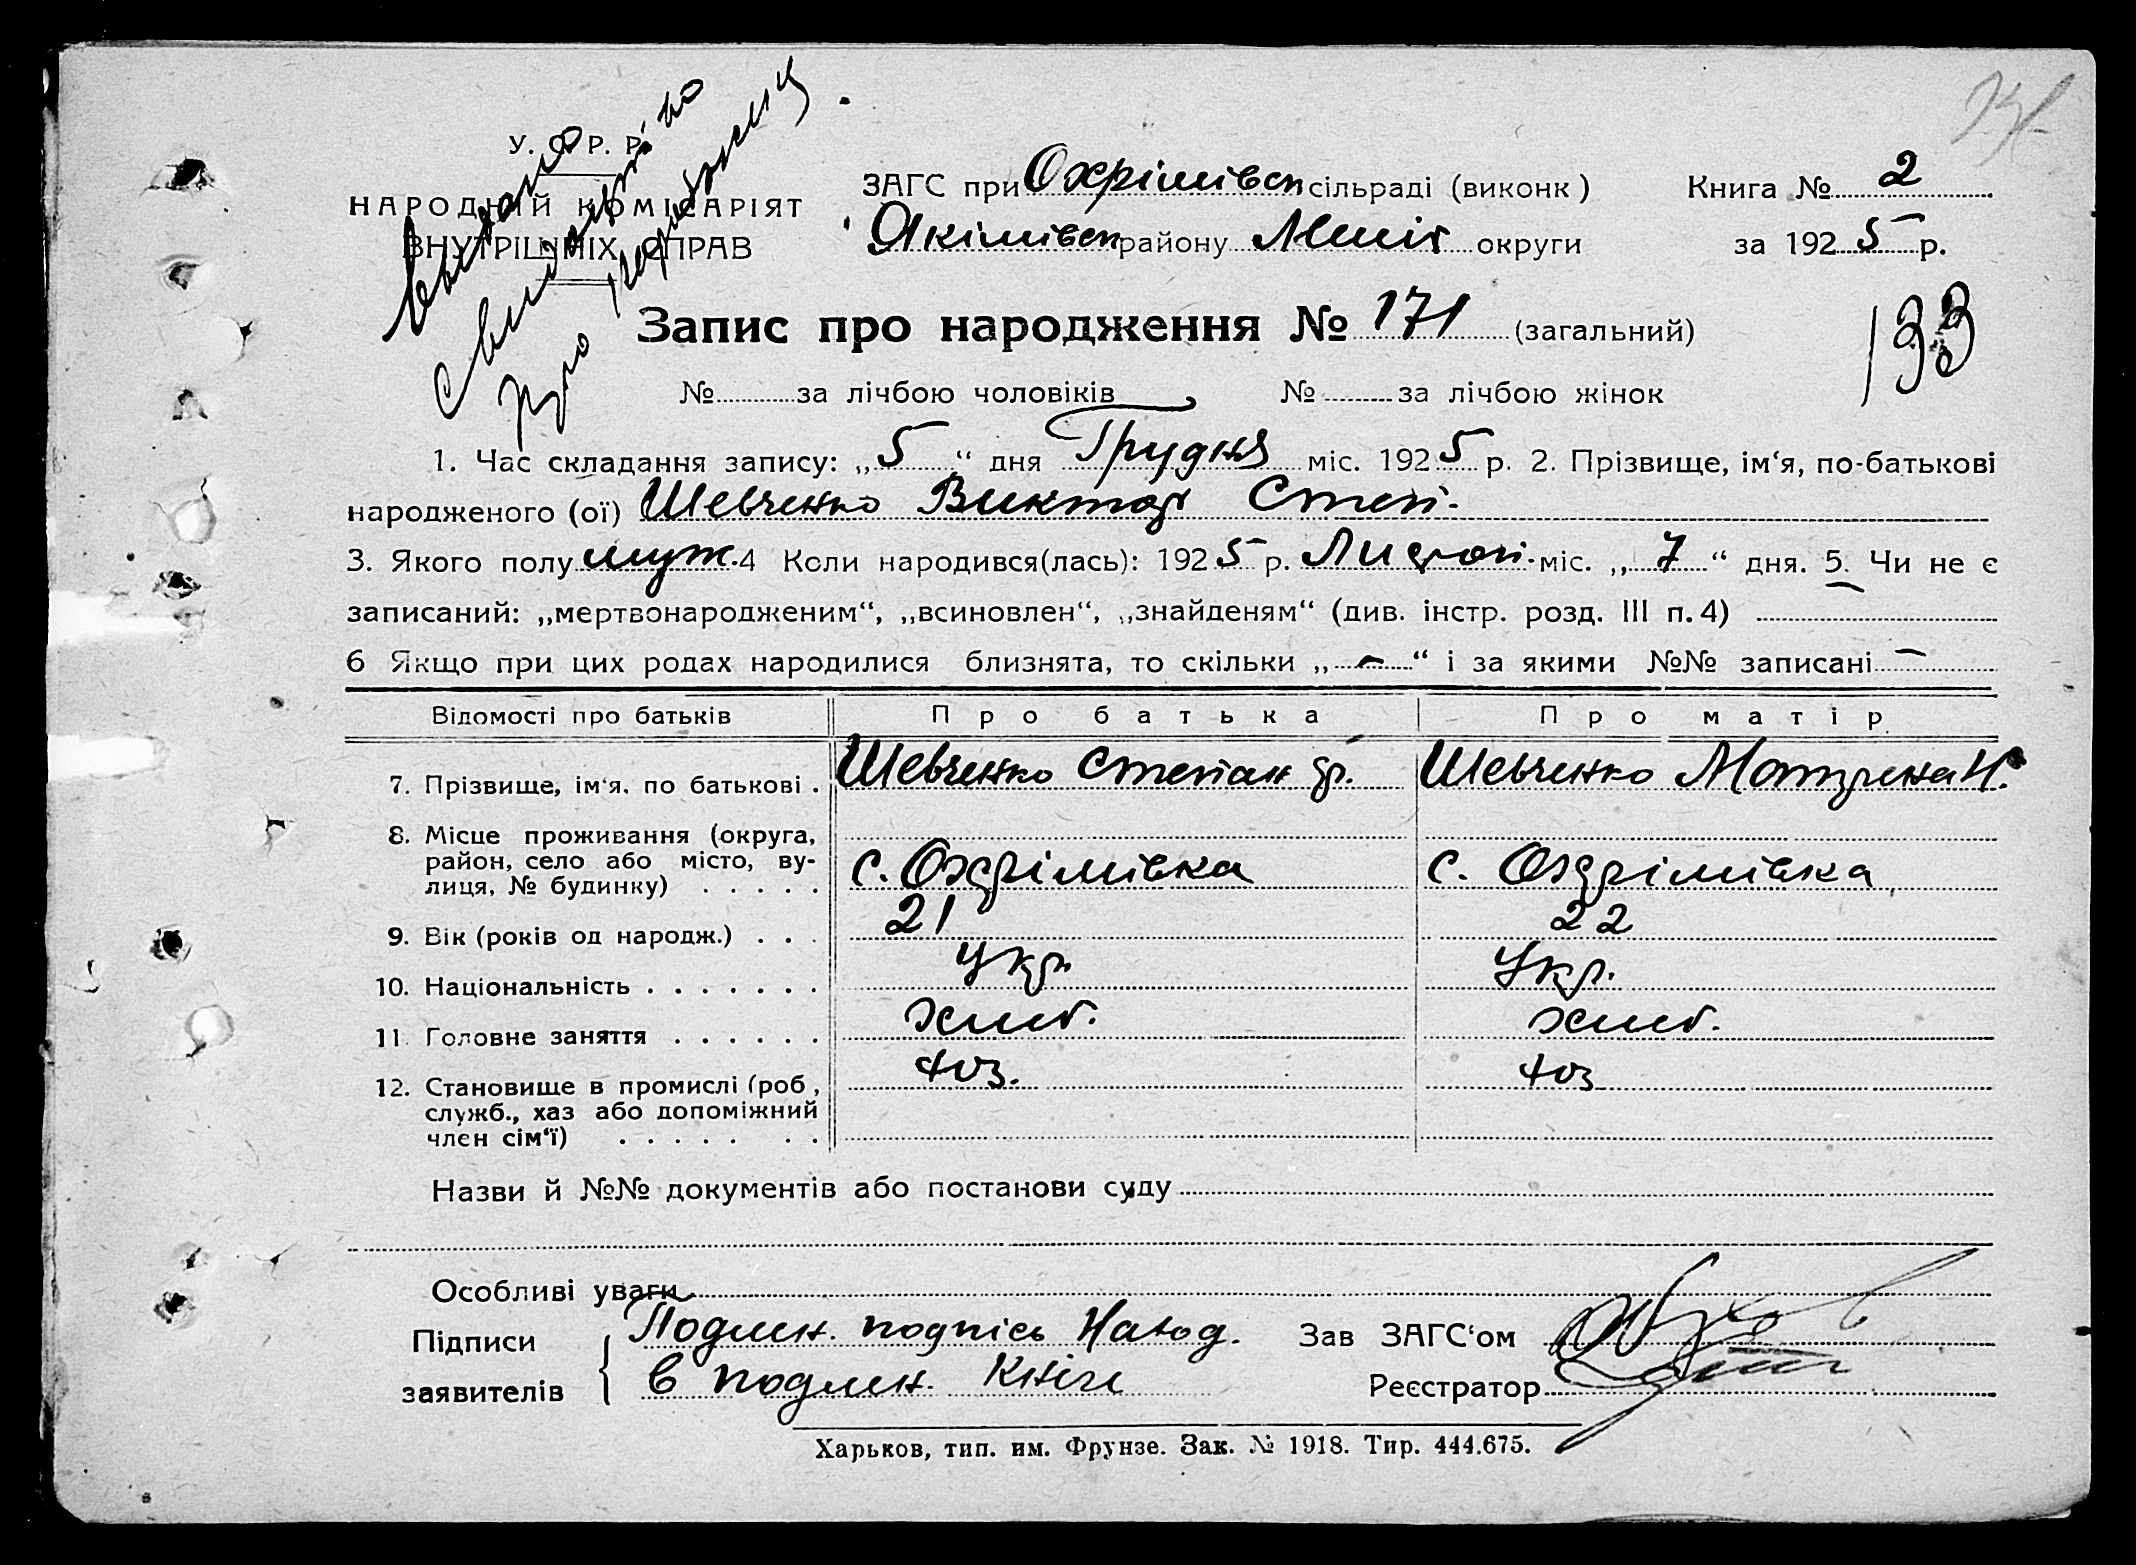 У. С. Р. Р.
НАРОДНІЙ КОМІСАРІЯТ
ВНУТРІШНІХ СПРАВ
Выдано
про
ЗАГС при Охрімівск сільраді (виконк)
Якімівск району Меліт округи
Книга № 2
за 1925 р.
Запис про народження № 171 (загальний)
133
№ за лічбою чоловіків № за лічбою жінок
1. Час складання запису: „5“ дня Грудня міс. 1925 р. 2. Прізвище, ім‘я, по-батькові
народженого (ої) Шевченко Виктор Степ.
3. Якого полу муж. 4 Коли народився(лась): 1925 р. Листоп. міс. „7“ дня. 5. Чи не є
записаний: „мертвонародженим“, „всиновлен“, „знайденям“ (див. інстр. розд. III п. 4) —
6 Якщо при цих родах народилися близнята, то скільки „—“ і за якими №№ записані —
Відомості про батьків Про батька Про матір
7. Прізвище, ім‘я, по батькові . Шевченко Степан Гр. Шевченко Мотрена Н.
8. Місце проживання (округа,
район, село або місто, ву-
лиця, № будинку) . . . . . с. Охрімівка с. Охрімівка
9. Вік (років од народж.) . . . 21 22
10. Національність . . . . . . . Укр. Укр.
11. Головне заняття . . . . . . хліб. хліб.
12. Становище в промислі (роб., хоз. хоз
служб., хаз або допоміжний
член сім‘ї) . . . . . . .
Назви й №№ документів або постанови суду
Особливі уваги
Підписи заявителів { Подлин. подпісь Наход.
в подлин. Кніге
Зав ЗАГС‘ом
Реєстратор
Харьков, тип. им. Фрунзе. Зак. № 1918. Тир. 444.675.